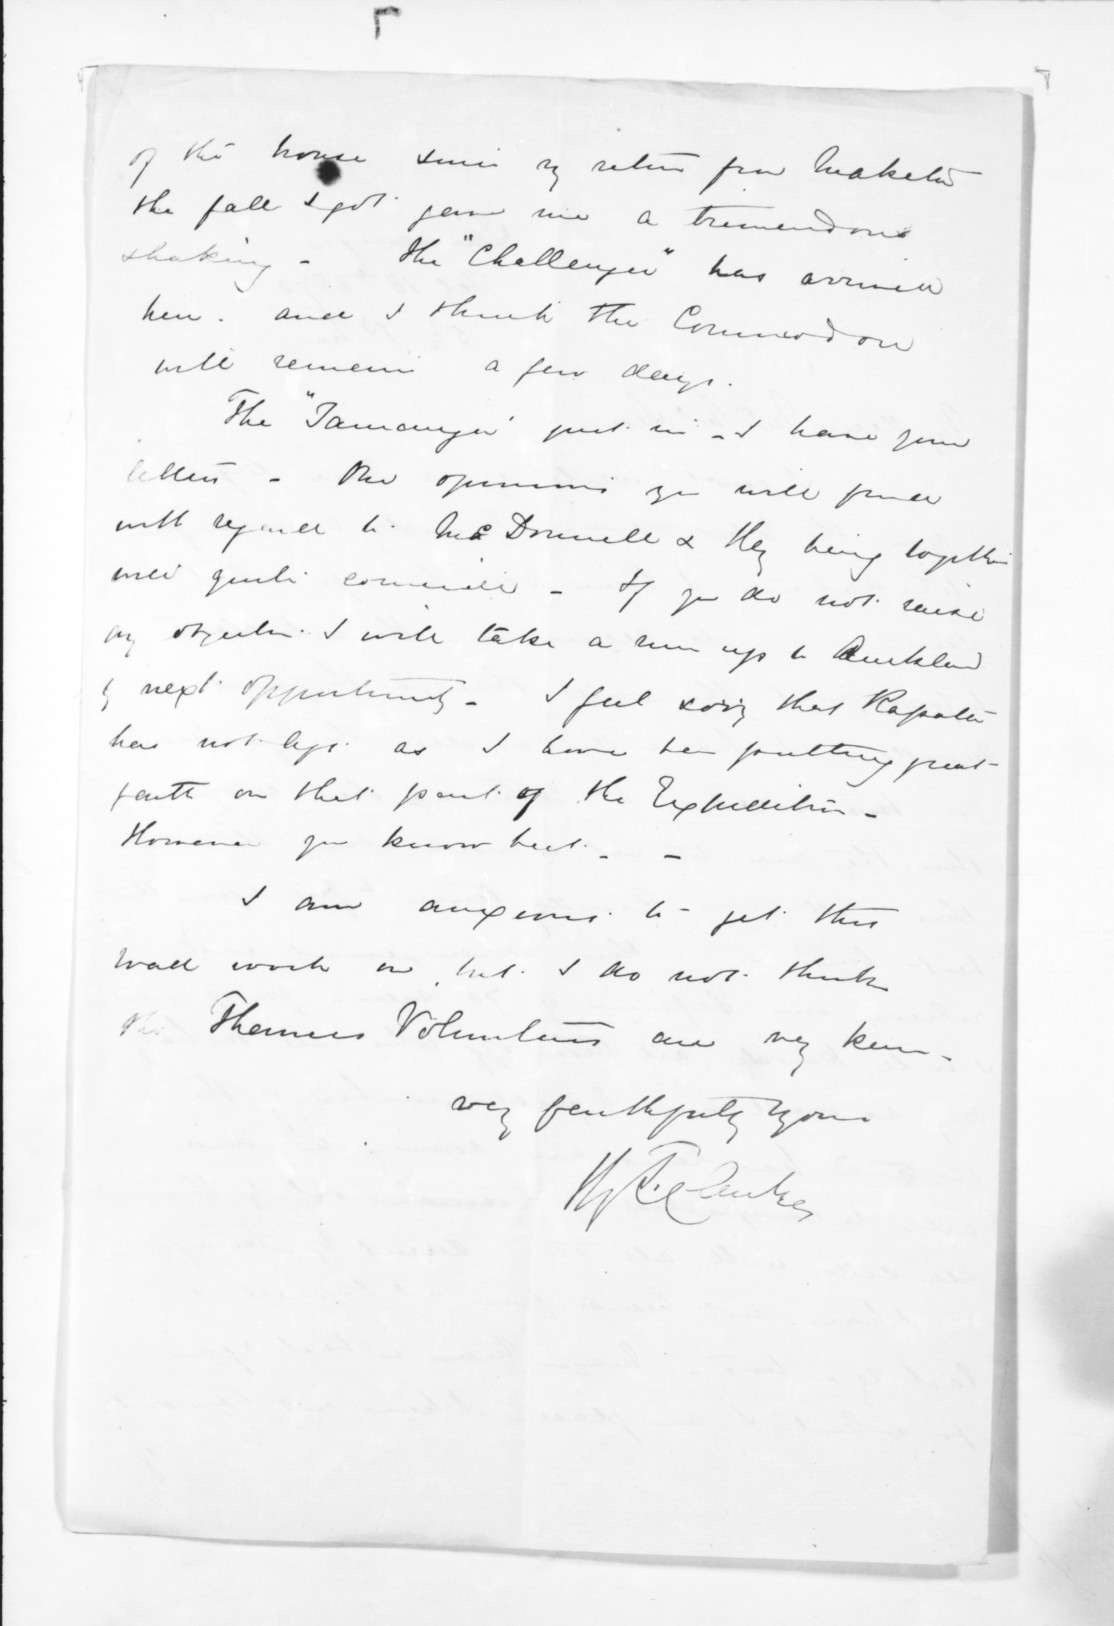 of the house since my return from Maketu
the fall I got gave me a tremendous
shaking - The "Challenger" has arrived
here. and I think the Commodore
will remain a few days.
The "Tauranga" just in - I have your
letters - The opinions you will find
with regard to McDonnell & Hy being together
will quite coincide - If you do not raise
any objection I will take a run up to Auckland
by next opportunity - I feel sorry that Ropata
has not left as I have been putting great
faith on that part of the Expedition -
However you know best - -
I am anxious to get this
road work on, but I do not think
the Thames Volunteers are very keen -
very faithfully yours
Hy T. Clarke